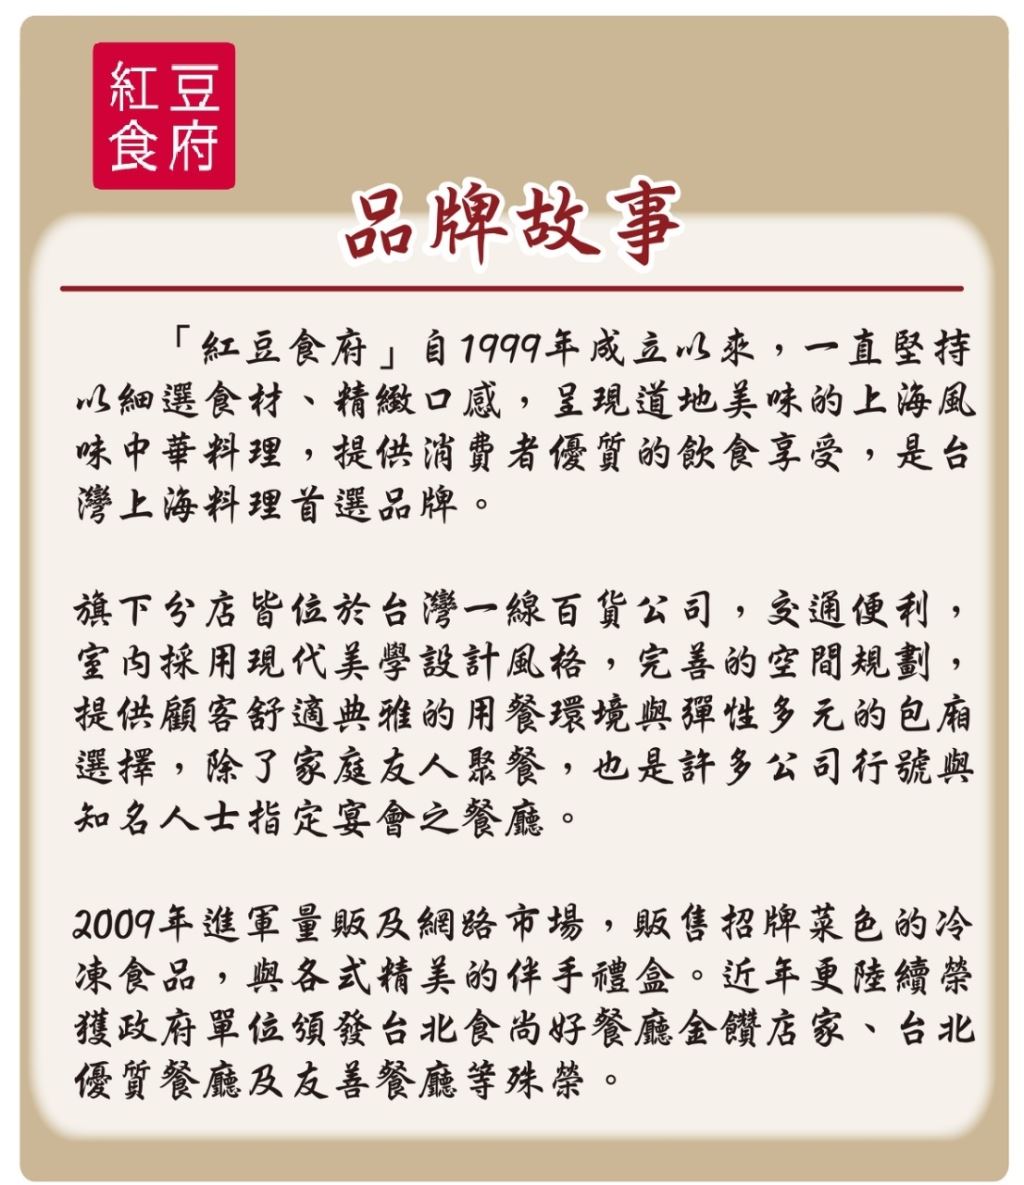 紅豆
食府
品牌故事
「紅豆食府」自1999年成立以來，一直堅持
以細選食材、精緻口感，呈現道地美味的上海風
味中華料理，提供消費者優質的飲食享受，是台
灣上海料理首選品牌。
旗下分店皆位於台灣一線百貨公司，交通便利，
室內採用現代美學設計風格，完善的空間規劃，
提供顧客舒適典雅的用餐環境與彈性多元的包廂
選擇，除了家庭友人聚餐，也是許多公司行號與
知名人士指定宴會之餐廳。
2009年進軍量販及網路市場，販售招牌菜色的冷
凍食品，與各式精美的伴手禮盒。近年更陸續榮
獲政府單位頒發台北食尚好餐廳金饡店家、台北
優質餐廳及友善餐廳等殊榮。